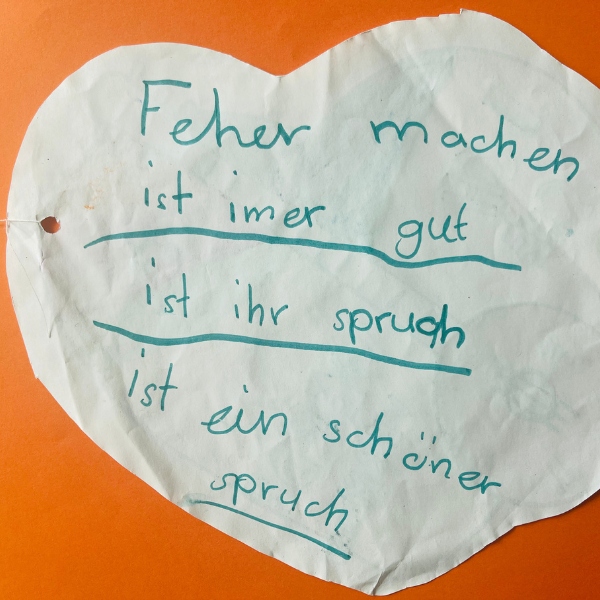 Feher machen
ist imer gut
ist ihr spruqh
ist ein schöner
spruch